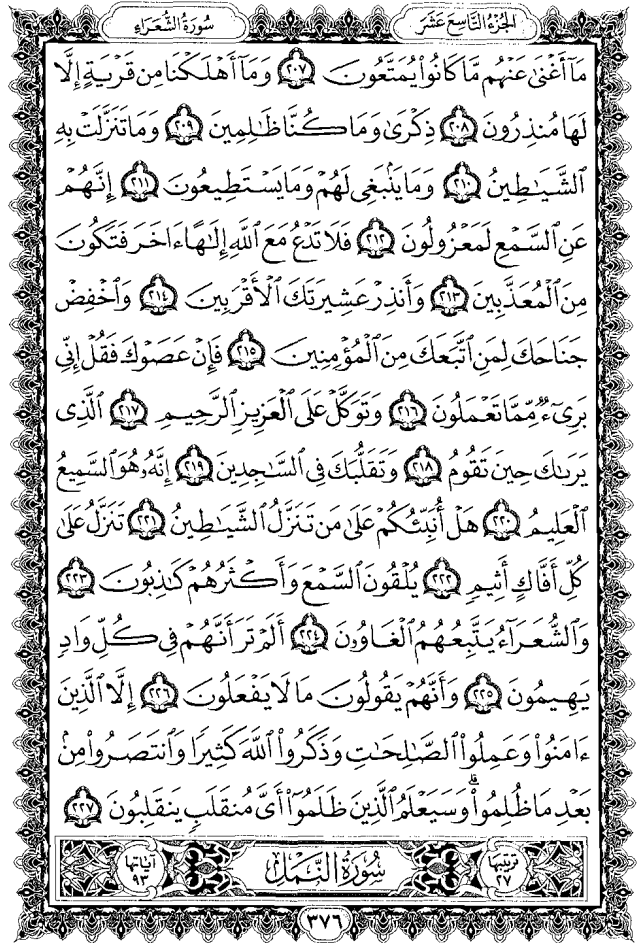 سُورَةُ الشُّعَرَاءِ
الجُزْءُ التَّاسِعَ عَشَرَ
مَآ أَغْنَىٰ عَنْهُم مَّا كَانُوا۟ يُمَتَّعُونَ ٢٠٧ وَمَآ أَهْلَكْنَا مِن قَرْيَةٍ إِلَّا
لَهَا مُنذِرُونَ ٢٠٨ ذِكْرَىٰ وَمَا كُنَّا ظَٰلِمِينَ ٢٠٩ وَمَا تَنَزَّلَتْ بِهِ
الشَّيَٰطِينُ ٢١٠ وَمَا يَنۢبَغِى لَهُمْ وَمَا يَسْتَطِيعُونَ ٢١١ إِنَّهُمْ
عَنِ السَّمْعِ لَمَعْزُولُونَ ٢١٢ فَلَا تَدْعُ مَعَ اللَّهِ إِلَٰهًا ءَاخَرَ فَتَكُونَ
مِنَ الْمُعَذَّبِينَ ٢١٣ وَأَنذِرْ عَشِيرَتَكَ الْأَقْرَبِينَ ٢١٤ وَاخْفِضْ
جَنَاحَكَ لِمَنِ اتَّبَعَكَ مِنَ الْمُؤْمِنِينَ ٢١٥ فَإِنْ عَصَوْكَ فَقُلْ إِنِّى
بَرِىٓءٌ مِّمَّا تَعْمَلُونَ ٢١٦ وَتَوَكَّلْ عَلَى الْعَزِيزِ الرَّحِيمِ ٢١٧ الَّذِى
يَرَىٰكَ حِينَ تَقُومُ ٢١٨ وَتَقَلُّبَكَ فِى السَّٰجِدِينَ ٢١٩ إِنَّهُۥ هُوَ السَّمِيعُ
الْعَلِيمُ ٢٢٠ هَلْ أُنَبِّئُكُمْ عَلَىٰ مَن تَنَزَّلُ الشَّيَٰطِينُ ٢٢١ تَنَزَّلُ عَلَىٰ
كُلِّ أَفَّاكٍ أَثِيمٍ ٢٢٢ يُلْقُونَ السَّمْعَ وَأَكْثَرُهُمْ كَٰذِبُونَ ٢٢٣
وَالشُّعَرَآءُ يَتَّبِعُهُمُ الْغَاوُۥنَ ٢٢٤ أَلَمْ تَرَ أَنَّهُمْ فِى كُلِّ وَادٍ
يَهِيمُونَ ٢٢٥ وَأَنَّهُمْ يَقُولُونَ مَا لَا يَفْعَلُونَ ٢٢٦ إِلَّا الَّذِينَ
ءَامَنُوا۟ وَعَمِلُوا۟ الصَّٰلِحَٰتِ وَذَكَرُوا۟ اللَّهَ كَثِيرًا وَانتَصَرُوا۟ مِنۢ
بَعْدِ مَا ظُلِمُوا۟ ۗ وَسَيَعْلَمُ الَّذِينَ ظَلَمُوٓا۟ أَىَّ مُنقَلَبٍ يَنقَلِبُونَ ٢٢٧
ترتيبها ٢٧ سُورَةُ النَّمْلِ آياتها ٩٣
٣٧٦